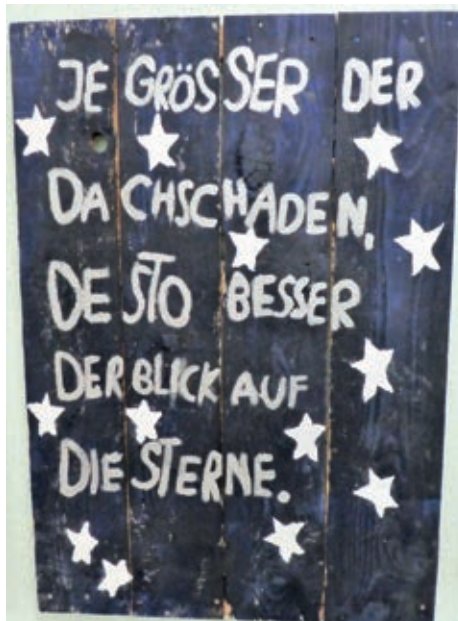 JE GRÖSSER DER
DACHSCHADEN,
DESTO BESSER
DER BLICK AUF
DIE STERNE.